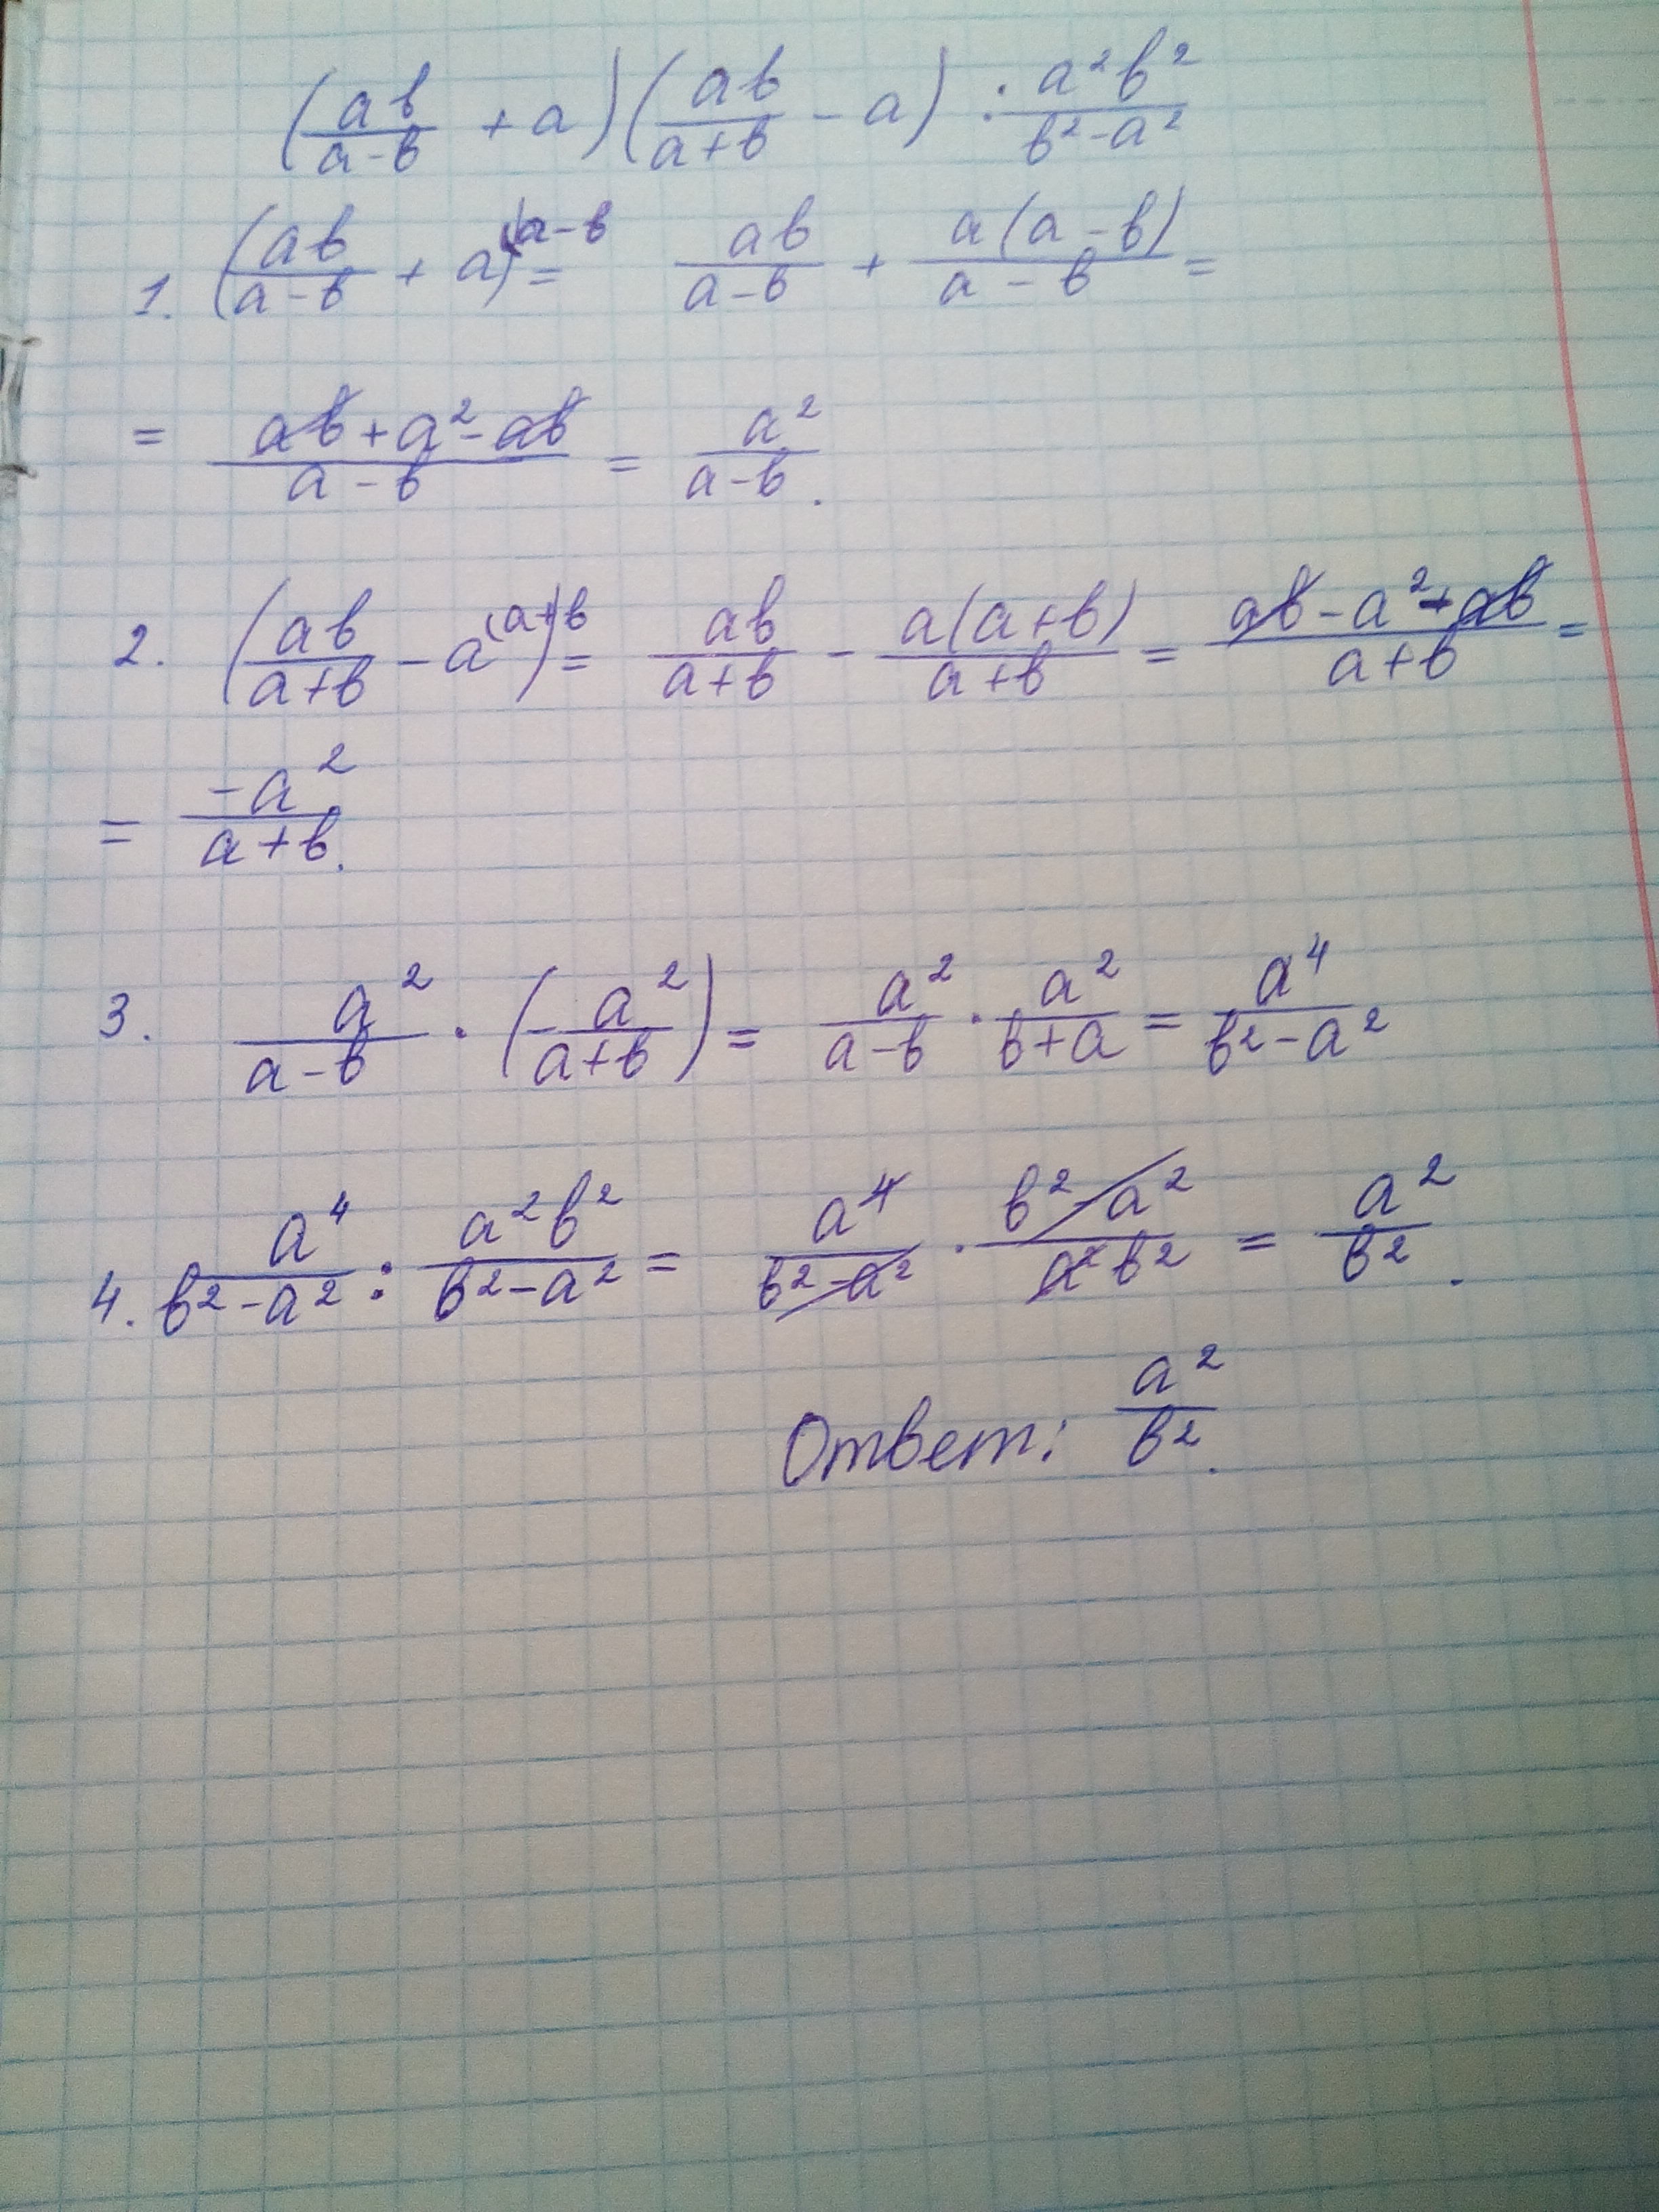 (ab/(a-b) + a)(ab/(a+b) - a) : a²b²/(b²-a²)
1. (ab/(a-b) + a)^(a-b = ab/(a-b) + a(a-b)/(a-b) =
= (ab+a²-ab)/(a-b) = a²/(a-b).
2. (ab/(a+b) - a^(a+b) = ab/(a+b) - a(a+b)/(a+b) = (ab-a²+ab)/(a+b) =
= -a²/(a+b).
3. a²/(a-b) · (-a²/(a+b)) = a²/(a-b) · a²/(b+a) = a⁴/(b²-a²)
4. a⁴/(b²-a²) : a²b²/(b²-a²) = a⁴/(b²-a²) · (b²-a²)/(a²b²) = a²/b².
Ответ: a²/b².